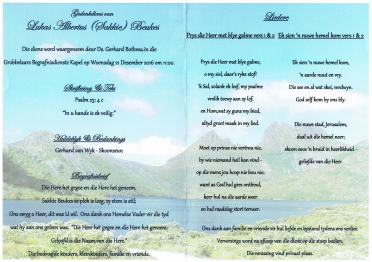 Gedenkdiens van
Lukas Albertus (Sakkie) Beukes
Die diens word waargeneem deur Ds. Gerhard Bothma in die
Grobbelaars Begrafnisdienste Kapel op Woensdag 21 Desember 2016 om 11:00.
Skriflesing & Teks
Psalm 23: 4 c
"In u hande is ek veilig."
Huldeblyk & Bedankings
Gerhard van Wyk - Skoonseun
Begrafnisbrief
Die Here het gegee en die Here het geneem.
Sakkie Beukes se plek is leeg, sy stem is stil;
Ons sweeg o Heer, dit was U wil. Ons dank ons Hemelse Vader vir die tyd
wat hy aan ons geleen was. "Die Here het gegee en die Here het geneem;
Geloofd is die Naam van die Here."
Die bedroefde kinders, kleinkinders, familie en vriende.
Liedere
Prys die Heer met blye galme vers 1 & 2
Prys die Heer met blye galme,
o my siel, daar's ryke stof!
'k Sal, solank ek leef, my psalme
vrolik toesing aan sy lof,
en Hom, wat sy guns my bied,
altyd groot maak in my lied.
Moet op prinse nie vertrou nie,
by wie niemand heil kan vind -
op die mens jou hoop nie bou nie:
want as God hul gees ontbind,
keer hul na die aarde weer
en hul raadslag stort terneer.
Ek sien 'n nuwe hemel kom vers 1 & 2
Ek sien 'n nuwe hemel kom,
'n aarde nuut en vry.
Die see en al wat skei, verdwyn,
God self kom by ons bly.
Die nuwe stad, Jerusalem,
daal uit die hemel neer;
skoon soos 'n bruid in heerlikheid -
geliefde van die Heer.
Ons dank aan familie en vriende vir hul liefde en bystand tydens ons verlies
Verversings word na afloop van die diens op die stoep bedien.
Die verassing vind privaat plaas.